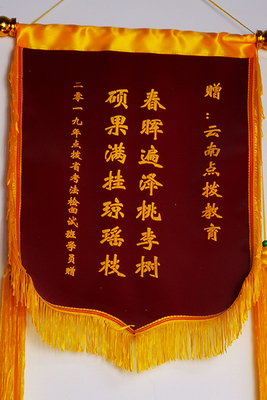 赠：云南点拨教育
春晖遍泽桃李树
硕果满挂琼瑶枝
二零一九年点拨省考法检面试班学员赠